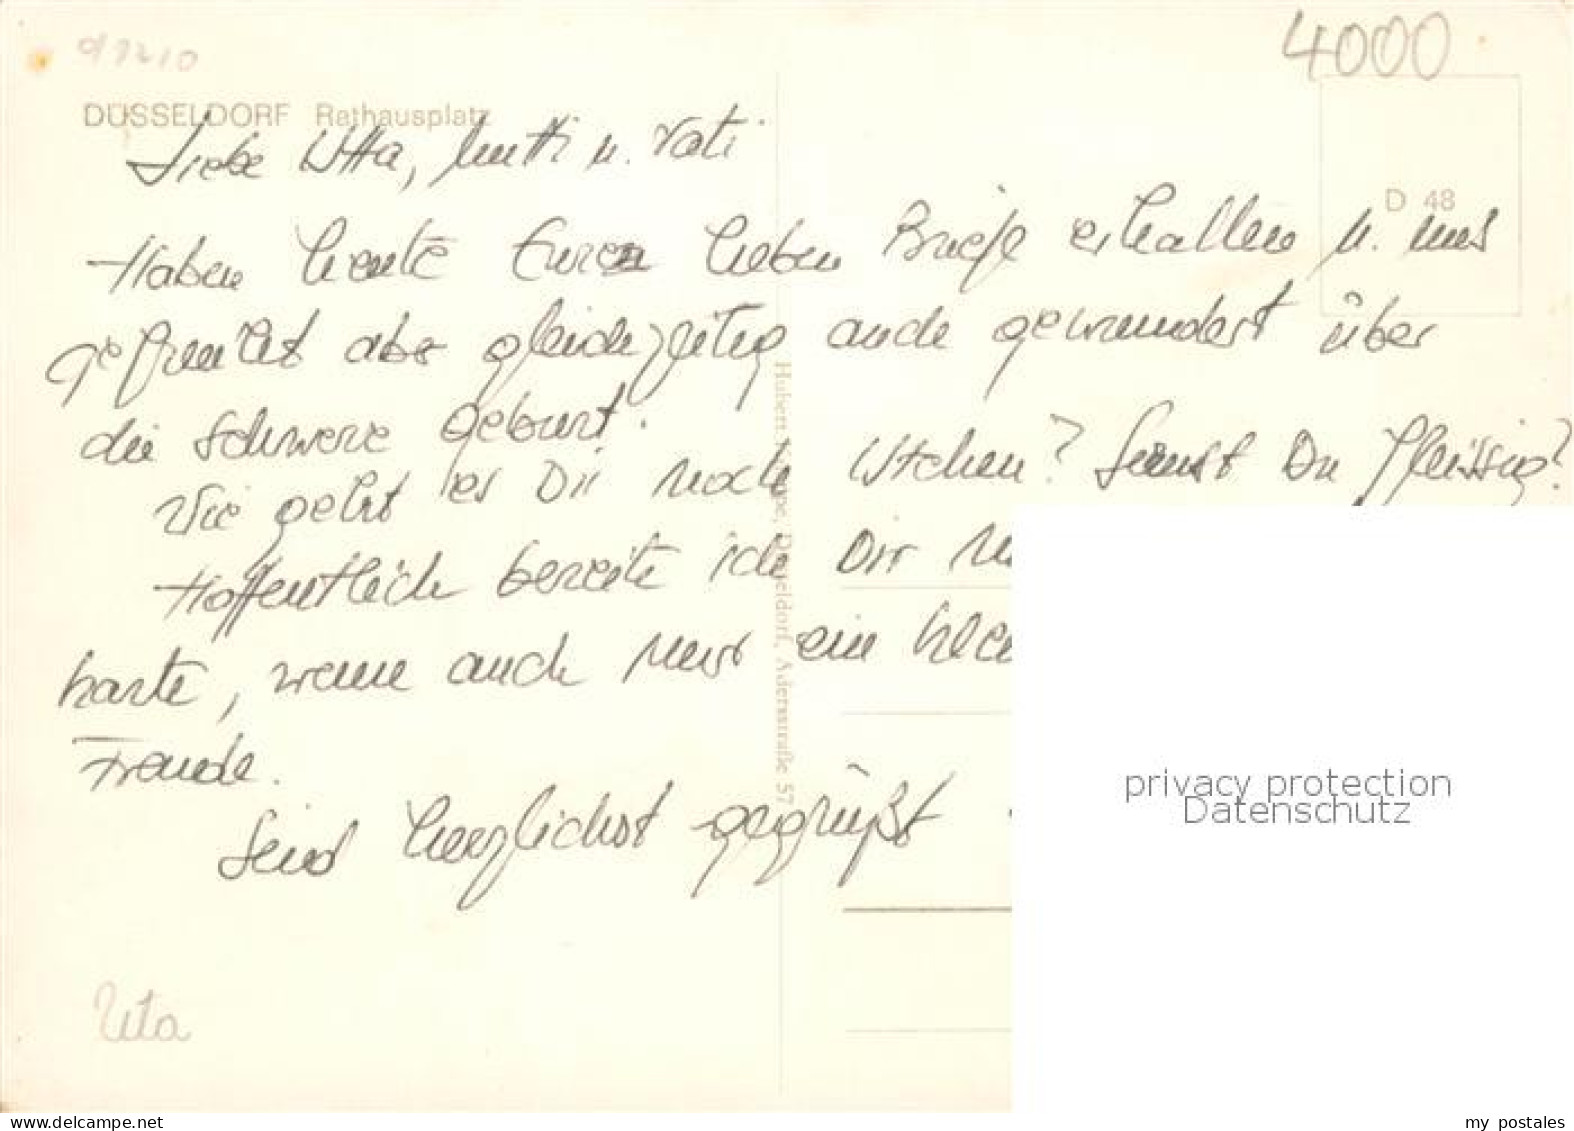 97210
4000
DÜSSELDORF Rathausplatz
D 48
Liebe Utta, Mutti u. Vati
Haben heute Euren lieben Brief erhalten u. uns
gefreut aber gleichzeitig auch gewundert über
die schwere Geburt.
Wie geht es Dir noch Utchen? Lernst Du fleissig?
Hoffentlich bereite ich Dir
Karte, wenn auch nur ein
Freude.
Seid herzlichst gegrüßt
Uta
Hubert Düsseldorf, Adersstraße 57
privacy protection
Datenschutz
oldthing.com
my postales